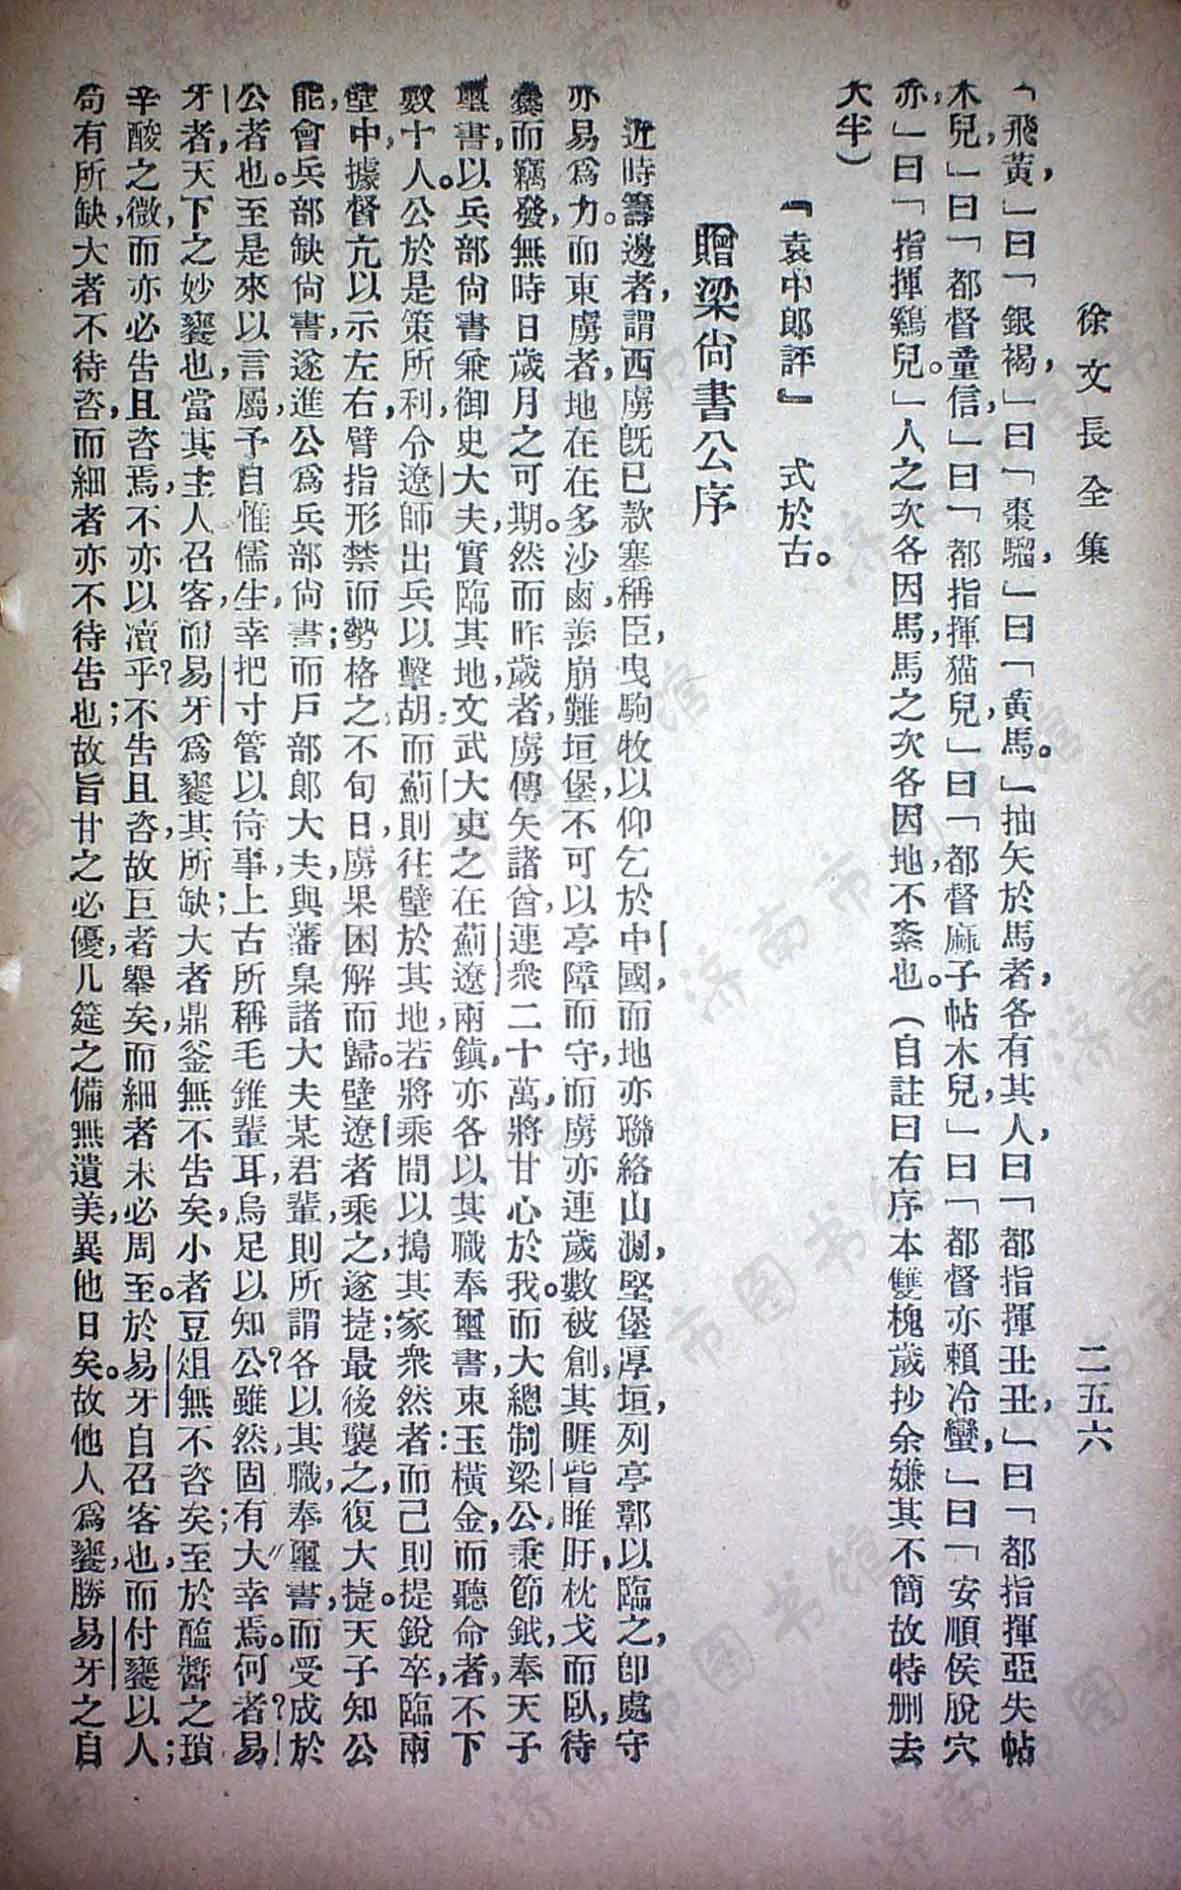 徐文長全集 二五六
「飛黃」曰「銀褐」曰「棗騮」曰「黃馬」抽矢於馬者各有其人曰「都指揮丑丑」曰「都指揮亞失帖
木兒」曰「都督童信」曰「都指揮猫兒」曰「都督麻子帖木兒」曰「都督亦賴冷蠻」曰「安順侯脫穴
亦」曰「指揮鷄兒」人之次各因馬馬之次各因地不紊也。(自註曰右序本雙槐歲抄余嫌其不簡故特删去
大半)
「袁中郎評」 式於古。
贈梁尙書公序
近時籌邊者,謂西虜旣已款塞稱臣,曳駒牧以仰乞於中國,而地亦聯絡山澗,堅堡厚垣,列亭鄣以臨之,卽處守
亦易爲力。而東虜者,地在在多沙鹵,善崩,難垣堡,不可以亭障而守,而虜亦連歲數被創,其睚眥睢盱,枕戈而臥,待
釁而竊發,無時日歲月之可期。然而昨歲者,虜傳矢諸酋,連衆二十萬,將甘心於我。而大總制梁公,秉節鉞,奉天子
璽書,以兵部尙書兼御史大夫,實臨其地,文武大吏之在薊遼兩鎭,亦各以其職奉璽書,束玉橫金,而聽命者,不下
數十人。公於是策所利,令遼師出兵以擊胡,而薊則往壁於其地,若將乘間以搗其家衆然者:而己則提銳卒,臨兩
壁中,據督亢以示左右,臂指形禁而勢格之,不旬日,虜果困解而歸。壁遼者乘之,遂捷;最後襲之,復大捷。天子知公
能,會兵部缺尙書,遂進公爲兵部尙書;而戶部郎大夫,與藩臬諸大夫某君輩,則所謂各以其職,奉璽書,而受成於
公者也。至是來以言屬予,自惟儒生,幸把寸管以待事,上古所稱毛錐輩耳,烏足以知公?雖然,固有大幸焉。何者?易
牙者,天下之妙饔也,當其主人召客,而易牙爲饔,其所缺大者鼎釜無不告矣,小者豆俎無不咨矣;至於醯醬之瑣,
辛酸之微,而亦必告且咨焉,不亦以瀆乎?不告且咨,故巨者舉矣,而細者未必周。至於易牙自召客也,而付饔以人;
苟有所缺,大者不待咨,而細者亦不待告也;故旨甘之必優,几筵之備無遺美,異他日矣。故他人爲饔,勝易牙之自